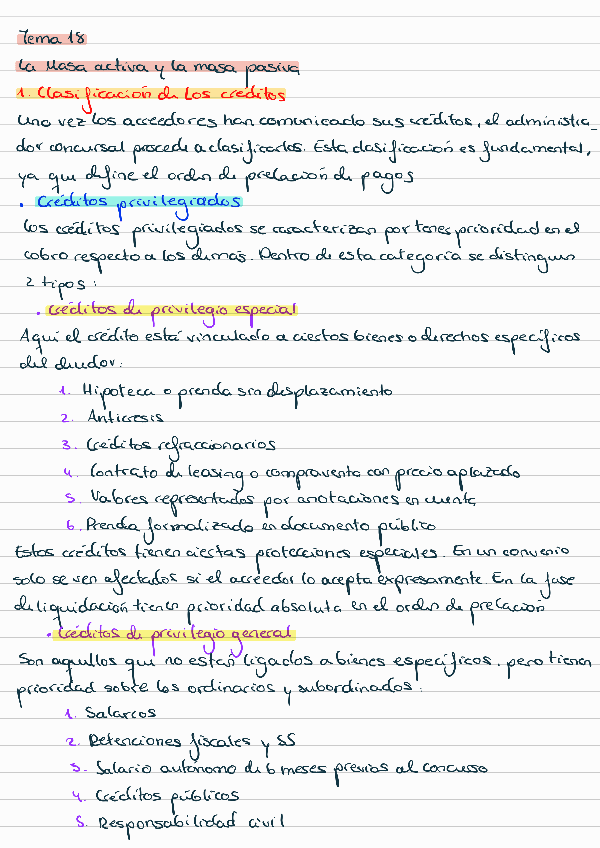 Tema 18
La Masa activa y la masa pasiva
1. Clasificación de los créditos
Una vez los acreedores han comunicado sus créditos, el administra_
dor concursal procede a clasificarlos. Esta clasificación es fundamental,
ya que define el orden de prelación de pagos
• Créditos privilegiados
Los créditos privilegiados se caracterizan por tener prioridad en el
cobro respecto a los demás. Dentro de esta categoría se distinguen
2 tipos:
• Créditos de privilegio especial
Aquí el crédito está vinculado a ciertos bienes o derechos específicos
del deudor:
1. Hipoteca o prenda sin desplazamiento
2. Anticresis
3. Créditos refraccionarios
4. Contrato de leasing o compraventa con precio aplazado
5. Valores representados por anotaciones en cuenta
6. Prenda formalizada en documento público
Estos créditos tienen ciertas protecciones especiales. En un convenio
solo se ven afectados si el acreedor lo acepta expresamente. En la fase
de liquidación tienen prioridad absoluta en el orden de prelación
• Créditos de privilegio general
Son aquellos que no están ligados a bienes específicos, pero tienen
prioridad sobre los ordinarios y subordinados:
1. Salarios
2. Retenciones fiscales y SS
3. Salario autónomo de 6 meses previos al concurso
4. Créditos públicos
5. Responsabilidad civil